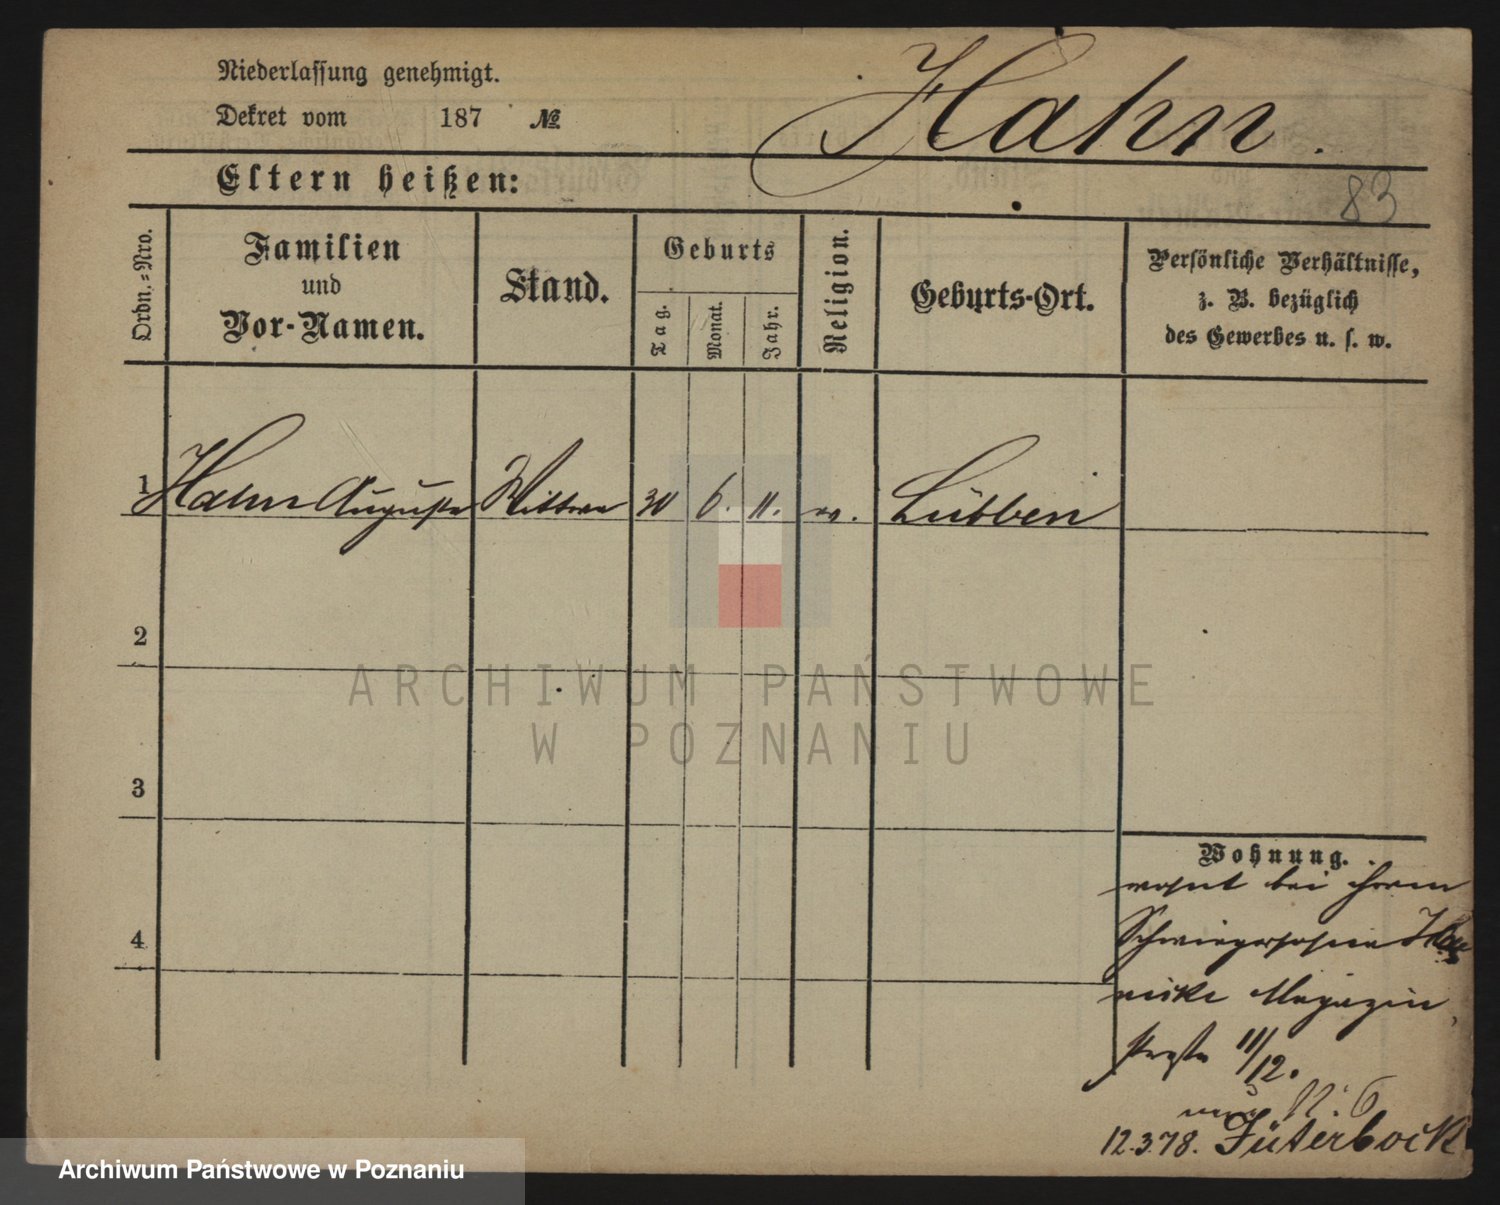 Niederlassung genehmigt.
Dekret vom 187 №
Hahn.
Eltern heißen:
83
Ordn.-Nro.
Familien
und
Vor-Namen.
Stand.
Geburts
Tag.
Monat.
Jahr.
Religion.
Geburts-Ort.
Persönliche Verhältnisse,
z. B. bezüglich
des Gewerbes u. s. w.
1 Hahn Auguste Wittwe 30 6. 11. ev. Lübben
2
3
4
Wohnung.
wohnt bei ihrem
Schwiegersohne
Magazin
straße 11/12.
N. 6
12.3.78. Jüterbock
ARCHIWUM PAŃSTWOWE
W POZNANIU
Archiwum Państwowe w Poznaniu